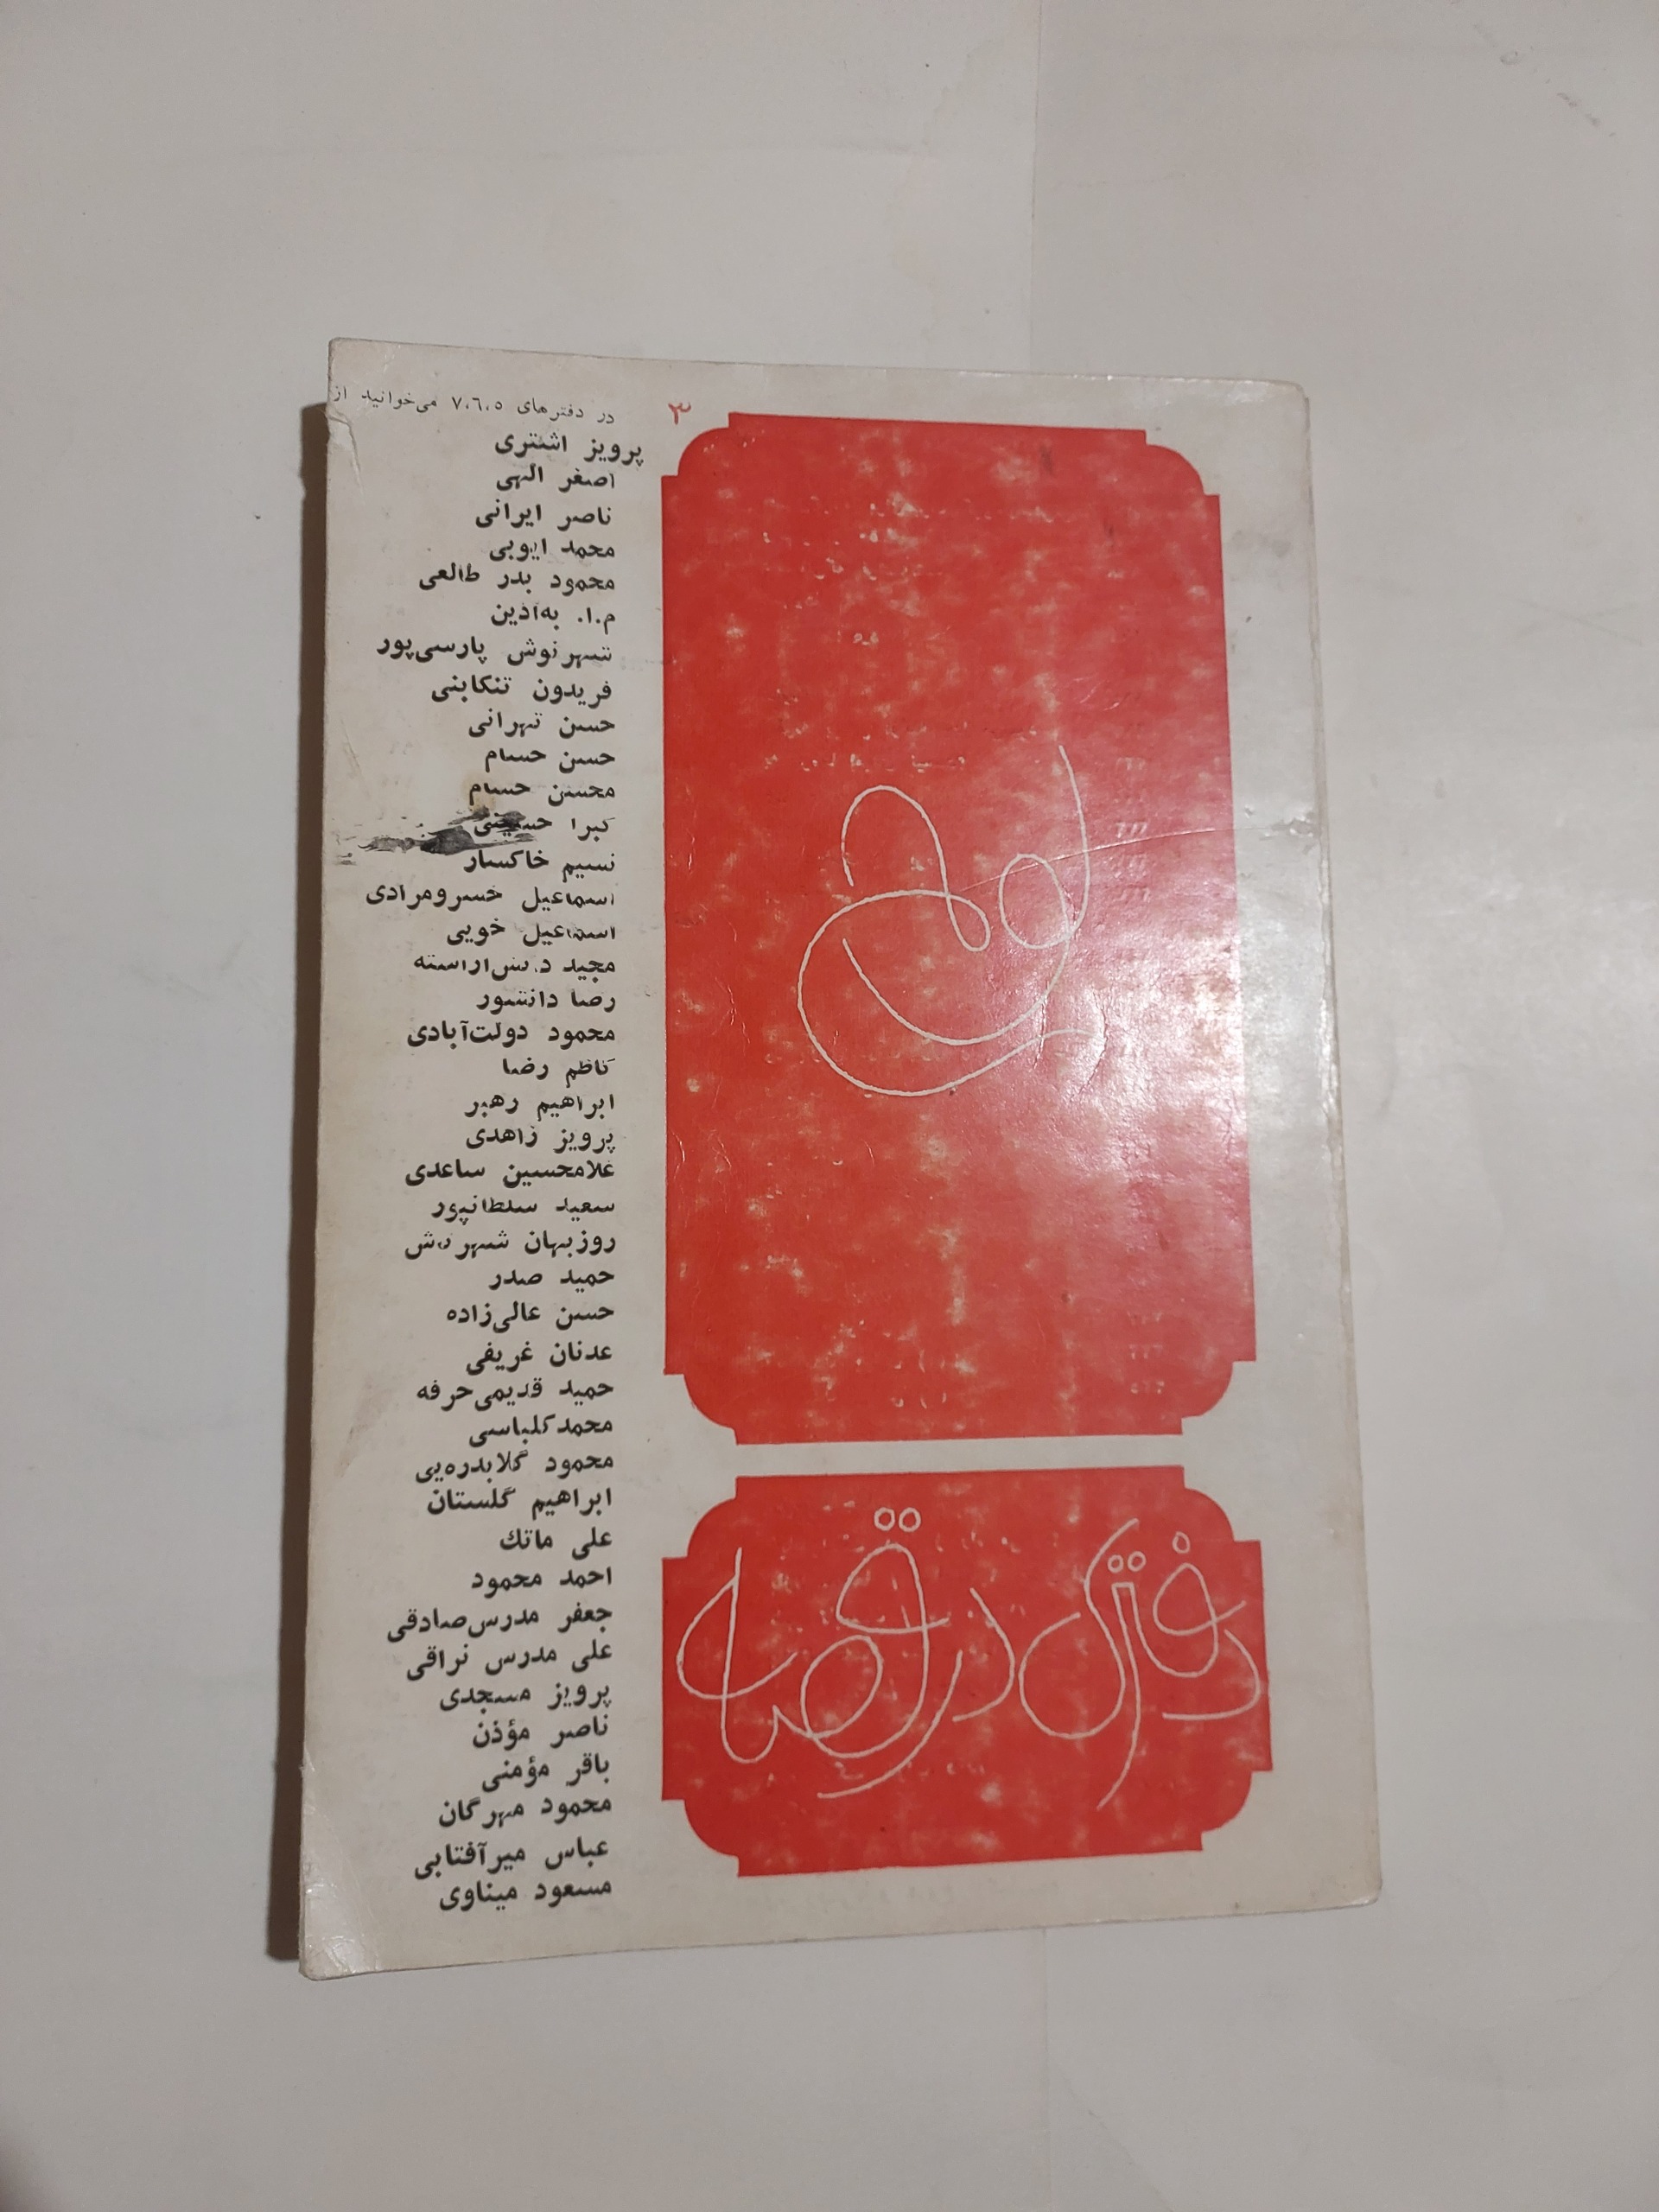 در دفترهای ۷،٦،٥ می‌خوانید از
۳
پرویز اشتری
اصغر الهی
ناصر ایرانی
محمد ایوبی
محمود بدر طالعی
م.ا. به‌آذین
شهرنوش پارسی‌پور
فریدون تنکابنی
حسن تهرانی
حسن حسام
محسن حسام
کبرا حسینی
نسیم خاکسار
اسماعیل خسرومرادی
اسماعیل خویی
مجید دانش‌آراسته
رضا دانشور
محمود دولت‌آبادی
کاظم رضا
ابراهیم رهبر
پرویز زاهدی
غلامحسین ساعدی
سعید سلطانپور
روزبهان شهردش
حمید صدر
حسن عالی‌زاده
عدنان غریفی
حمید قدیمی‌حرفه
محمد کلباسی
محمود گلابدره‌یی
ابراهیم گلستان
علی ماتك
احمد محمود
جعفر مدرس‌صادقی
علی مدرس نراقی
پرویز مسجدی
ناصر مؤذن
باقر مؤمنی
محمود مهرگان
عباس میرآفتابی
مسعود میناوی
لوح
دفتری در قصه